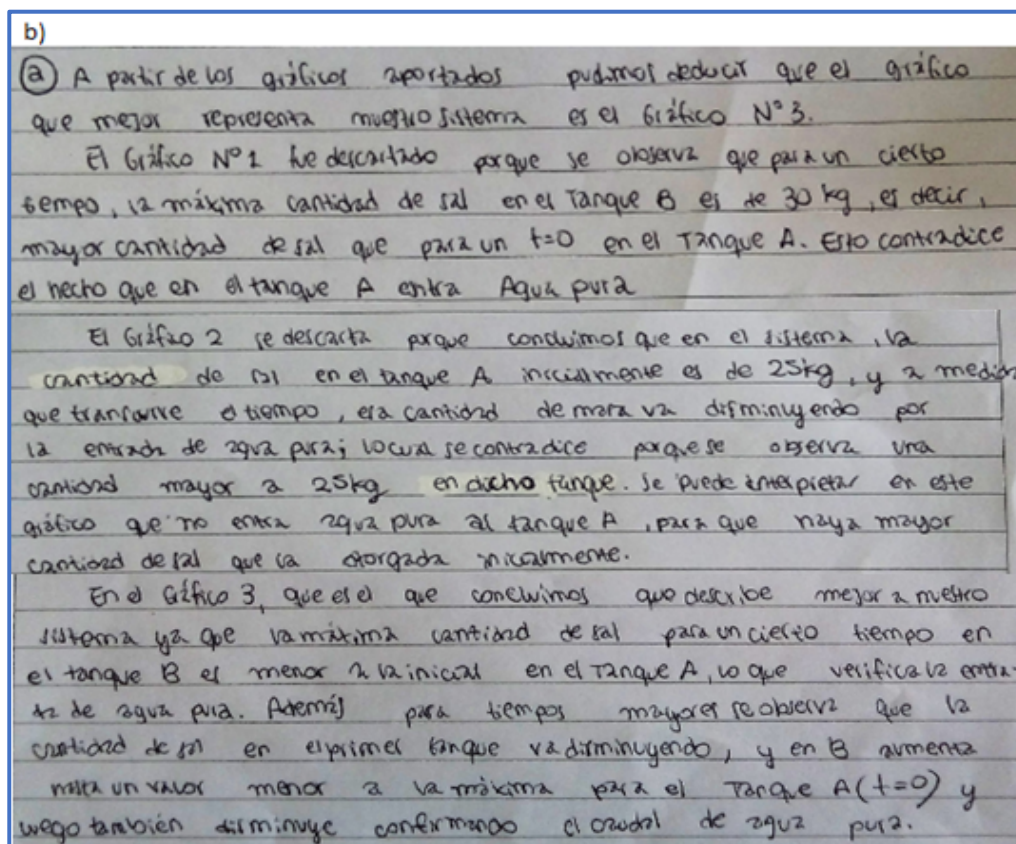 b)
a A partir de los gráficos aportados pudimos deducir que el gráfico
que mejor representa nuestro sistema es el Gráfico N° 3.
El Gráfico N° 1 fue descartado porque se observa que para un cierto
tiempo, la máxima cantidad de sal en el Tanque B es de 30 kg, es decir,
mayor cantidad de sal que para un t=0 en el Tanque A. Esto contradice
el hecho que en el tanque A entra Agua pura
El Gráfico 2 se descarta porque concluimos que en el sistema, la
cantidad de sal en el tanque A inicialmente es de 25kg, y a medida
que transcurre el tiempo, esa cantidad de masa va disminuyendo por
la entrada de agua pura; lo cual se contradice porque se observa una
cantidad mayor a 25kg en dicho tanque. Se puede interpretar en este
gráfico que no entra agua pura al tanque A, para que haya mayor
cantidad de sal que la otorgada inicialmente.
En el Gráfico 3, que es el que concluimos que describe mejor a nuestro
sistema ya que la máxima cantidad de sal para un cierto tiempo en
el tanque B es menor a la inicial en el Tanque A, lo que verifica la entra-
da de agua pura. Además para tiempos mayores se observa que la
cantidad de sal en el primer tanque va disminuyendo, y en B aumenta
hasta un valor menor a la máxima para el Tanque A (t=0) y
luego también disminuye confirmando el caudal de agua pura.